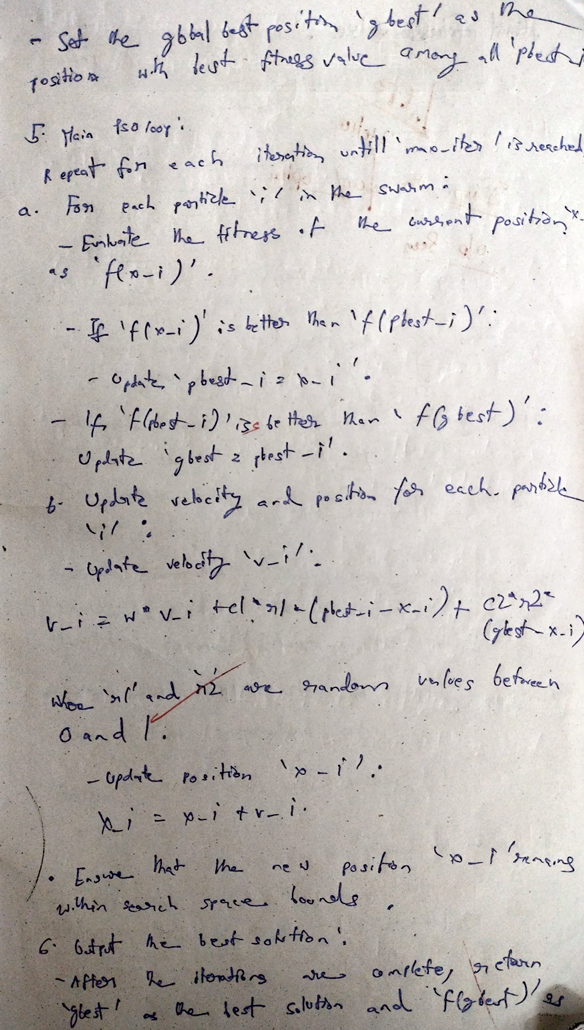 - Set the global best position 'gbest' as the
position with best fitness value among all 'pbest-i
5. Main PSO loop:
Repeat for each iteration untill 'max-iter' is reached
a. For each particle 'i' in the swarm:
- Evaluate the fitness of the current position 'x-
as 'f(x-i)'.
- If 'f(x-i)' is better than 'f(pbest-i)':
- Update 'pbest-i = x-i'.
- If 'f(pbest-i)' is better than 'f(gbest)':
Update 'gbest = pbest-i'.
b- Update velocity and position for each particle
'i':
- Update velocity 'v-i':
v-i = w* v-i + c1*r1*(pbest-i - x-i) + c2*r2*
(gbest-x-i)
where 'r1' and 'r2' are random values between
0 and 1.
- Update position 'x-i':
x-i = x-i + v-i.
• Ensure that the new position 'x-i' remains
within search space bounds.
6. Output the best solution:
- After the iterations are complete, return
'gbest' as the best solution and 'f(gbest)' as